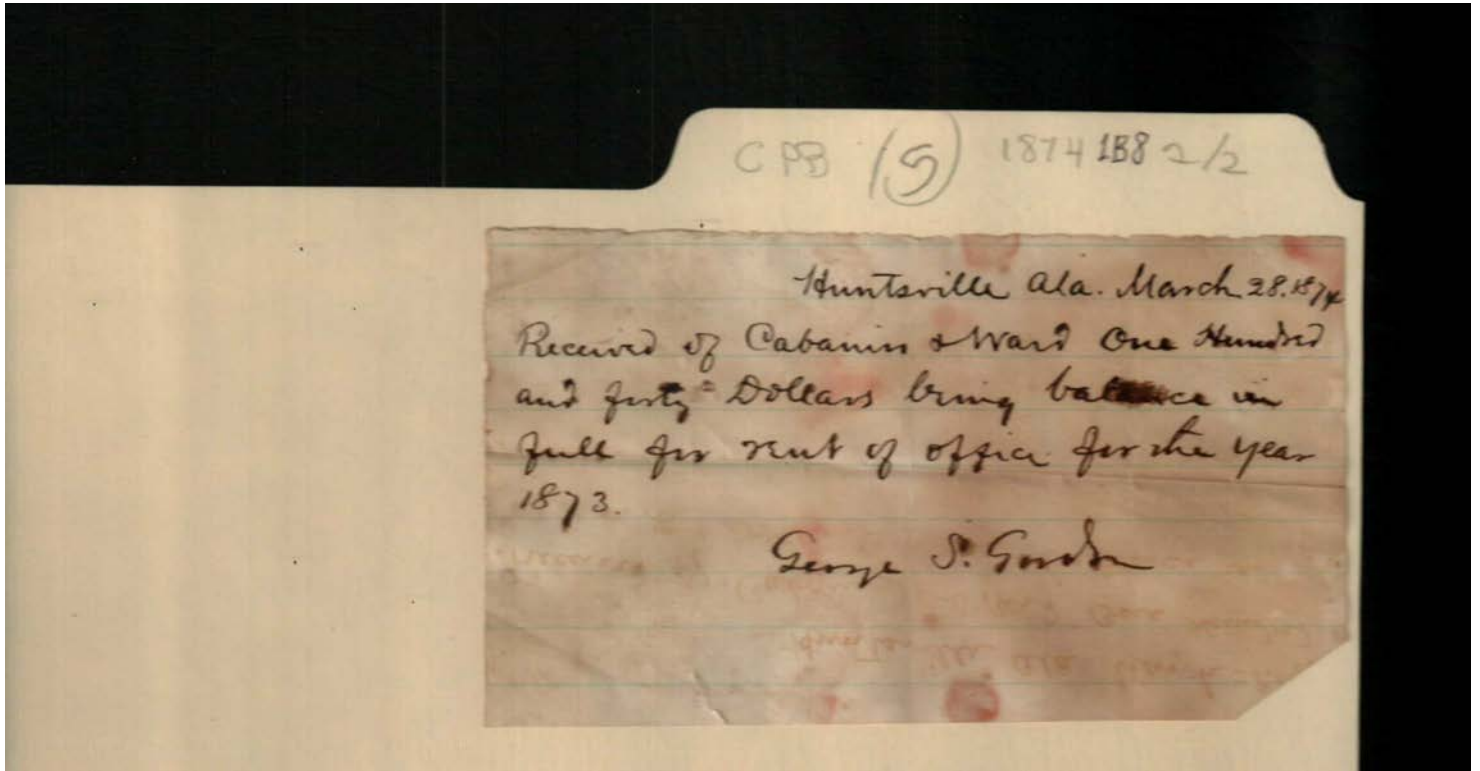 CPB (5) 1874 1B8 2/2
Huntsville Ala. March 28. 1874
Received of Cabaniss & Ward One Hundred
and forty = Dollars being balance in
full for rent of office for the year
1873.
George S. Gordon
Huntsville Ala March